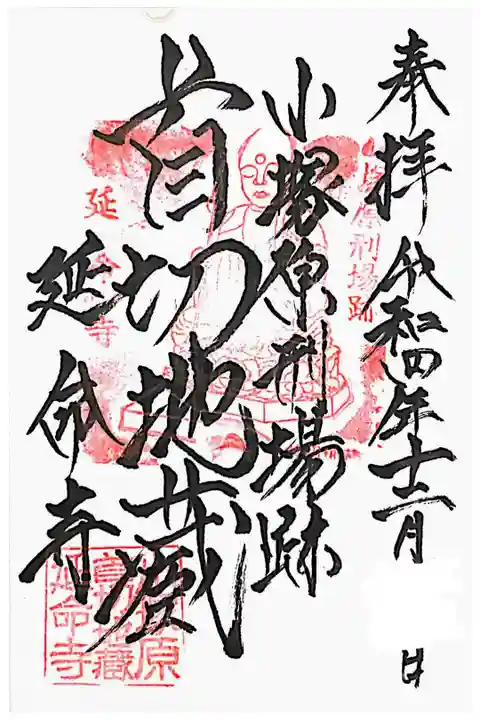 奉拝 令和四年十二月 日
小塚原刑場跡
首切地蔵
延命寺
小塚原刑場跡
延命寺
小塚原
首切地蔵
延命寺